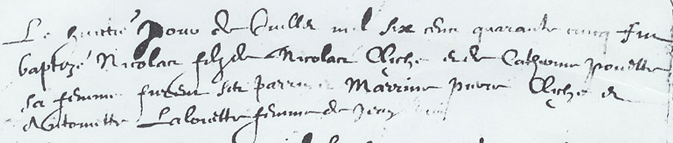 Le huictie Jour de Juillet mil six cens quarante cinq fut
baptizé Nicolas filz de Nicolas Cliche et de Catherine Pouette
sa femme furent ses parrin Marrine pierre Cliche et
Antoinette Lalouette femme de Jean